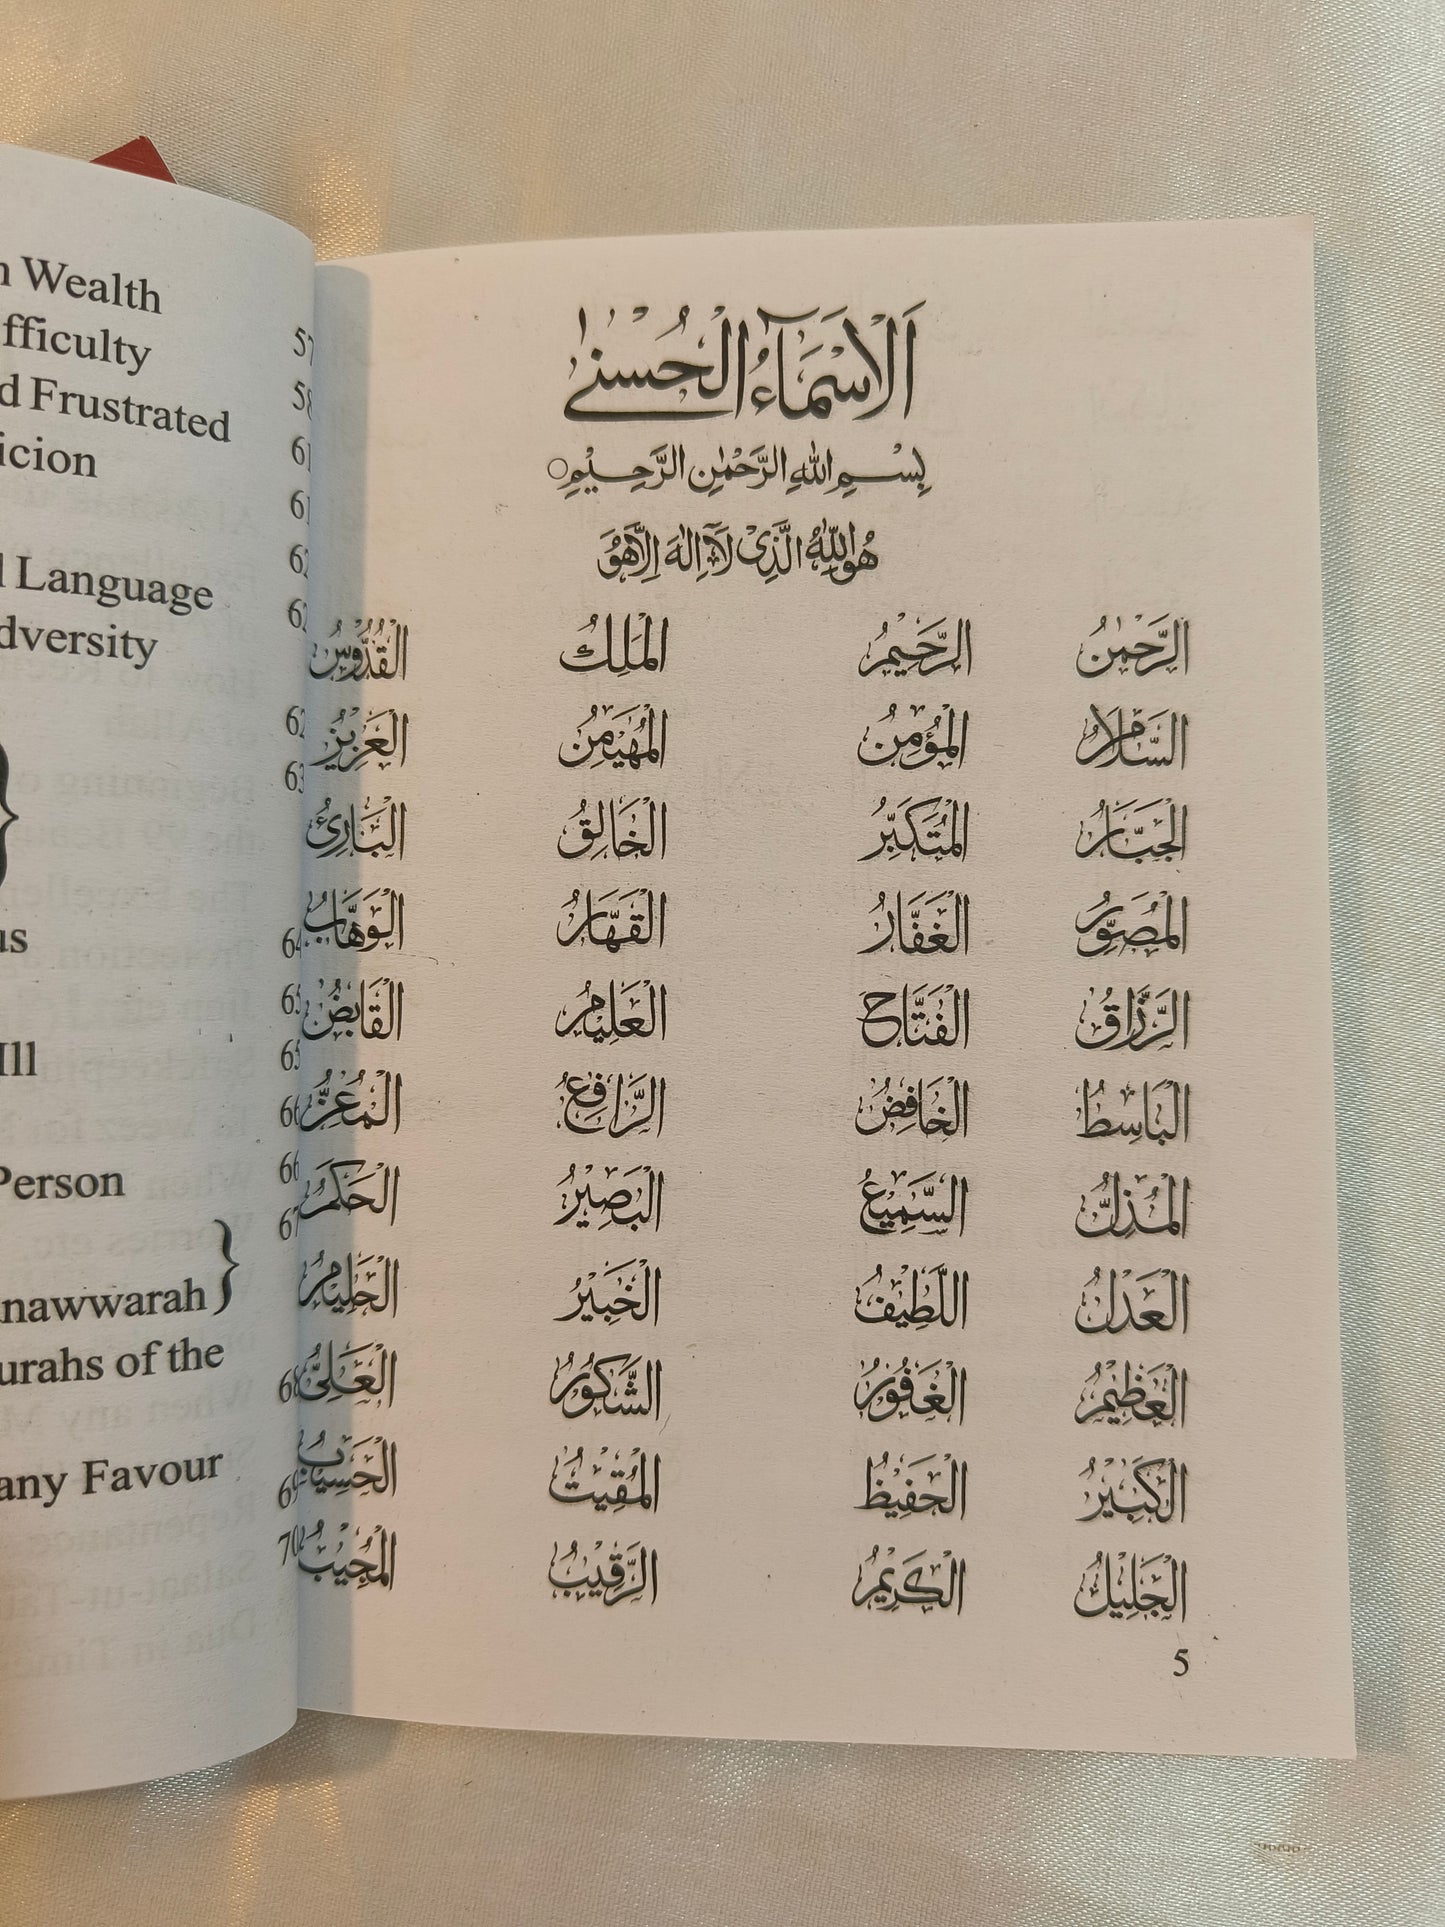 n Wealth
fficulty 57
d Frustrated 58
icion 61
61
l Language 62
dversity 62
62
63
us
64
65
Ill 65
66
Person 66
67
nawwarah }
urahs of the 68
any Favour 69
70
اَلْاَسْمَآءُ الْحُسْنٰى
بِسْمِ اللهِ الرَّحْمٰنِ الرَّحِيْمِ ○
هُوَ اللّٰهُ الَّذِىْ لَآ اِلٰهَ اِلَّا هُوَ
الرَّحْمٰنُ الرَّحِيْمُ الْمَلِكُ الْقُدُّوْسُ
السَّلَامُ الْمُؤْمِنُ الْمُهَيْمِنُ الْعَزِيْزُ
الْجَبَّارُ الْمُتَكَبِّرُ الْخَالِقُ الْبَارِئُ
الْمُصَوِّرُ الْغَفَّارُ الْقَهَّارُ الْوَهَّابُ
الرَّزَّاقُ الْفَتَّاحُ الْعَلِيْمُ الْقَابِضُ
الْبَاسِطُ الْخَافِضُ الرَّافِعُ الْمُعِزُّ
الْمُذِلُّ السَّمِيْعُ الْبَصِيْرُ الْحَكَمُ
الْعَدْلُ اللَّطِيْفُ الْخَبِيْرُ الْحَلِيْمُ
الْعَظِيْمُ الْغَفُوْرُ الشَّكُوْرُ الْعَلِىُّ
الْكَبِيْرُ الْحَفِيْظُ الْمُقِيْتُ الْحَسِيْبُ
الْجَلِيْلُ الْكَرِيْمُ الرَّقِيْبُ الْمُجِيْبُ
5